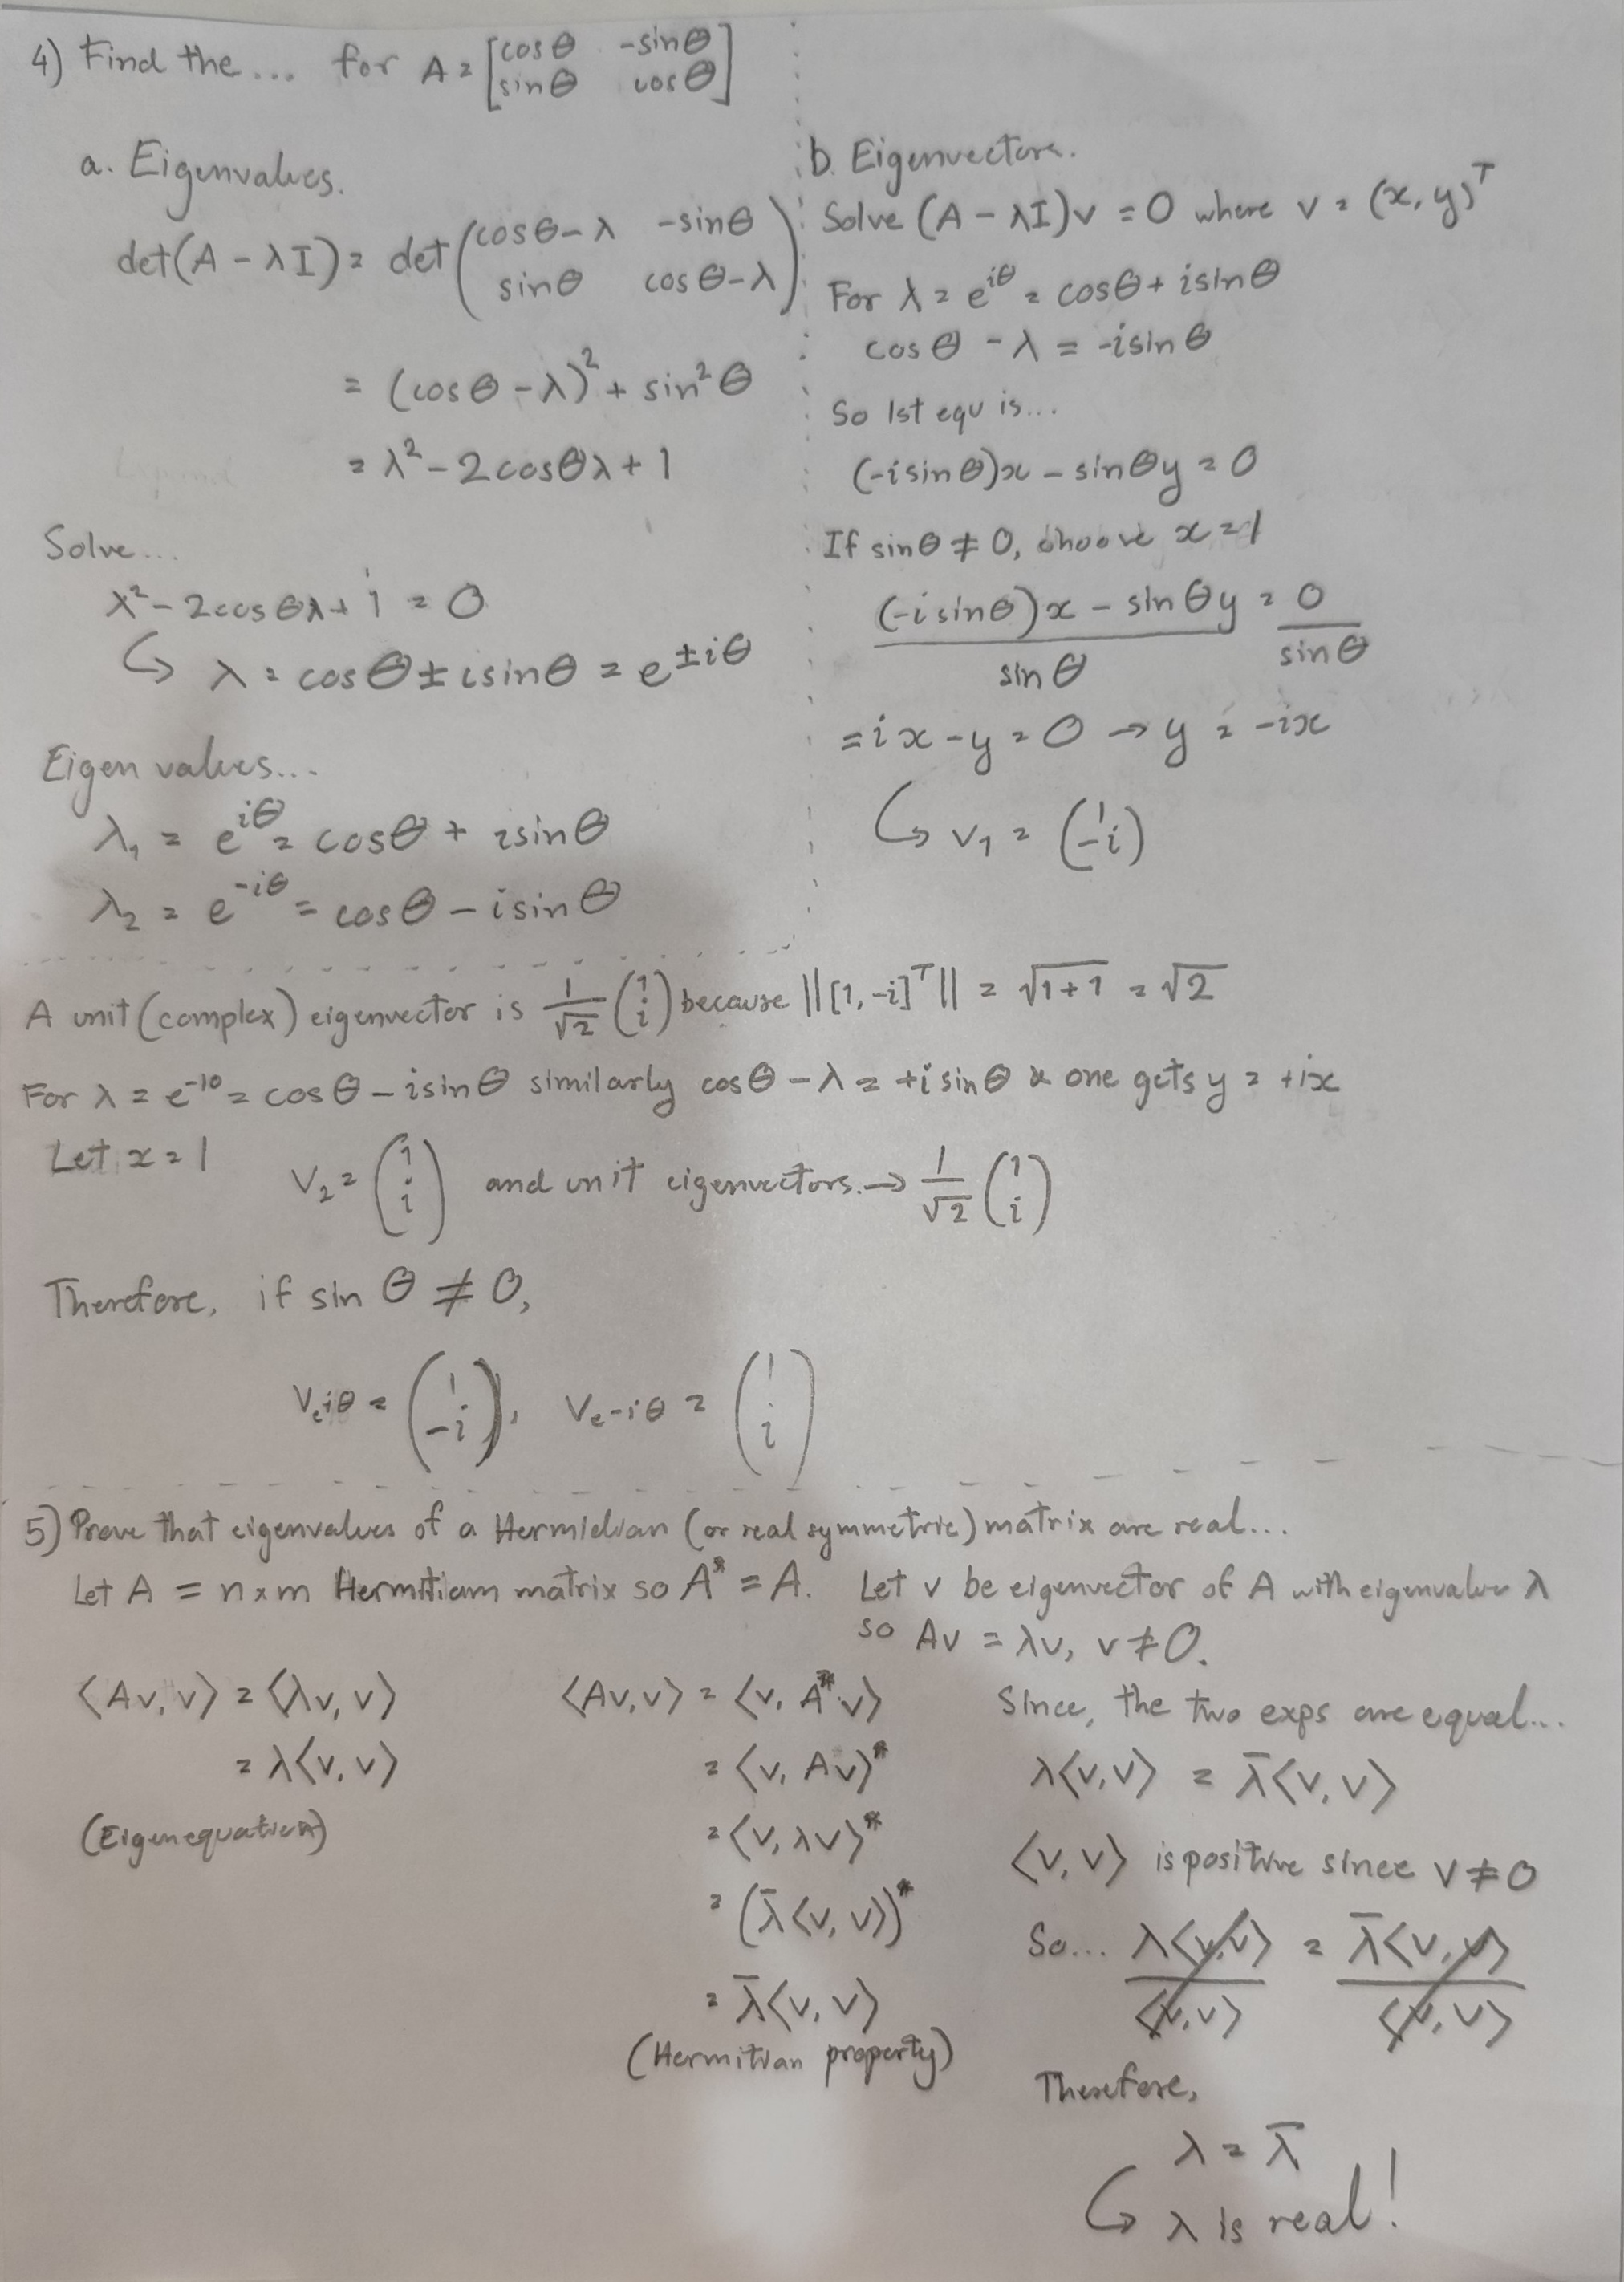 4) Find the... for A = [cosθ -sinθ
sinθ cosθ]
a. Eigenvalues.
det(A - λI) = det(cosθ-λ -sinθ
sinθ cosθ-λ)
= (cosθ - λ)² + sin²θ
= λ² - 2cosθλ + 1
Solve...
λ² - 2cosθλ + 1 = 0
↳ λ = cosθ ± isinθ = e^±iθ
Eigen values...
λ₁ = e^iθ = cosθ + isinθ
λ₂ = e^-iθ = cosθ - isinθ
b. Eigenvectors.
Solve (A - λI)v = 0 where v = (x, y)ᵀ
For λ = e^iθ = cosθ + isinθ
cosθ - λ = -isinθ
So 1st equ is...
(-isinθ)x - sinθy = 0
If sinθ ≠ 0, choose x = 1
(-isinθ)x - sinθy = 0
sinθ sinθ
= ix - y = 0 → y = -ix
↳ v₁ = (1
-i)
A unit (complex) eigenvector is 1/√2 (1
i) because ||[1, -i]ᵀ|| = √1+1 = √2
For λ = e^-iθ = cosθ - isinθ similarly cosθ - λ = +isinθ & one gets y = +ix
Let x = 1
V₂ = (1
i) and unit eigenvectors. → 1/√2 (1
i)
Therefore, if sinθ ≠ 0,
V_e^iθ = (1
-i), V_e^-iθ = (1
i)
5) Prove that eigenvalues of a Hermidian (or real symmetric) matrix are real...
Let A = n×m Hermitiam matrix so A* = A. Let v be eigenvector of A with eigenvalue λ
so Av = λv, v ≠ 0.
⟨Av, v⟩ = ⟨λv, v⟩
= λ⟨v, v⟩
(Eigenequation)
⟨Av, v⟩ = ⟨v, A*v⟩
= ⟨v, Av⟩*
= ⟨v, λv⟩*
= (λ̄⟨v, v⟩)*
= λ̄⟨v, v⟩
(Hermitian property)
Since, the two exps are equal...
λ⟨v, v⟩ = λ̄⟨v, v⟩
⟨v, v⟩ is positive since v ≠ 0
So... λ⟨v, v⟩ = λ̄⟨v, v⟩
⟨v, v⟩ ⟨v, v⟩
Therefore,
λ = λ̄
↳ λ is real!